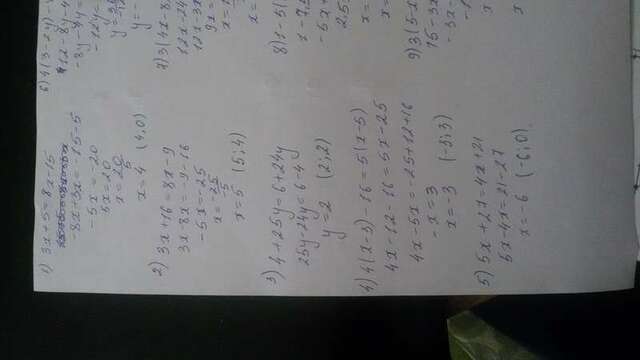 1) 3x+5=8x-15
-8x+3x=-15-5
-5x=-20
5x=20
x=20/5
x=4 (4,0)
2) 3x+16=8x-9
3x-8x=-9-16
-5x=-25
x=-25/-5
x=5 (5;4)
3) 4+25y=6+24y
25y-24y=6-4
y=2 (2;2)
4) 4(x-3)-16=5(x-5)
4x-12-16=5x-25
4x-5x=-25+12+16
-x=3
x=-3 (-3;3)
5) 5x+27=4x+21
5x-4x=21-27
x=-6 (-6;0)
6) 4(3-2y)-
12-8y-4
-8y-
-12y=
y=
y=-
7) 3(4x-8
12x-24
12x-3x
9x=
x=
x=
8) 1-5(
1-7,5
-5x+
2,5
x=
x=
9) 3(5-x
15-3x
-3x-
-1
x
x